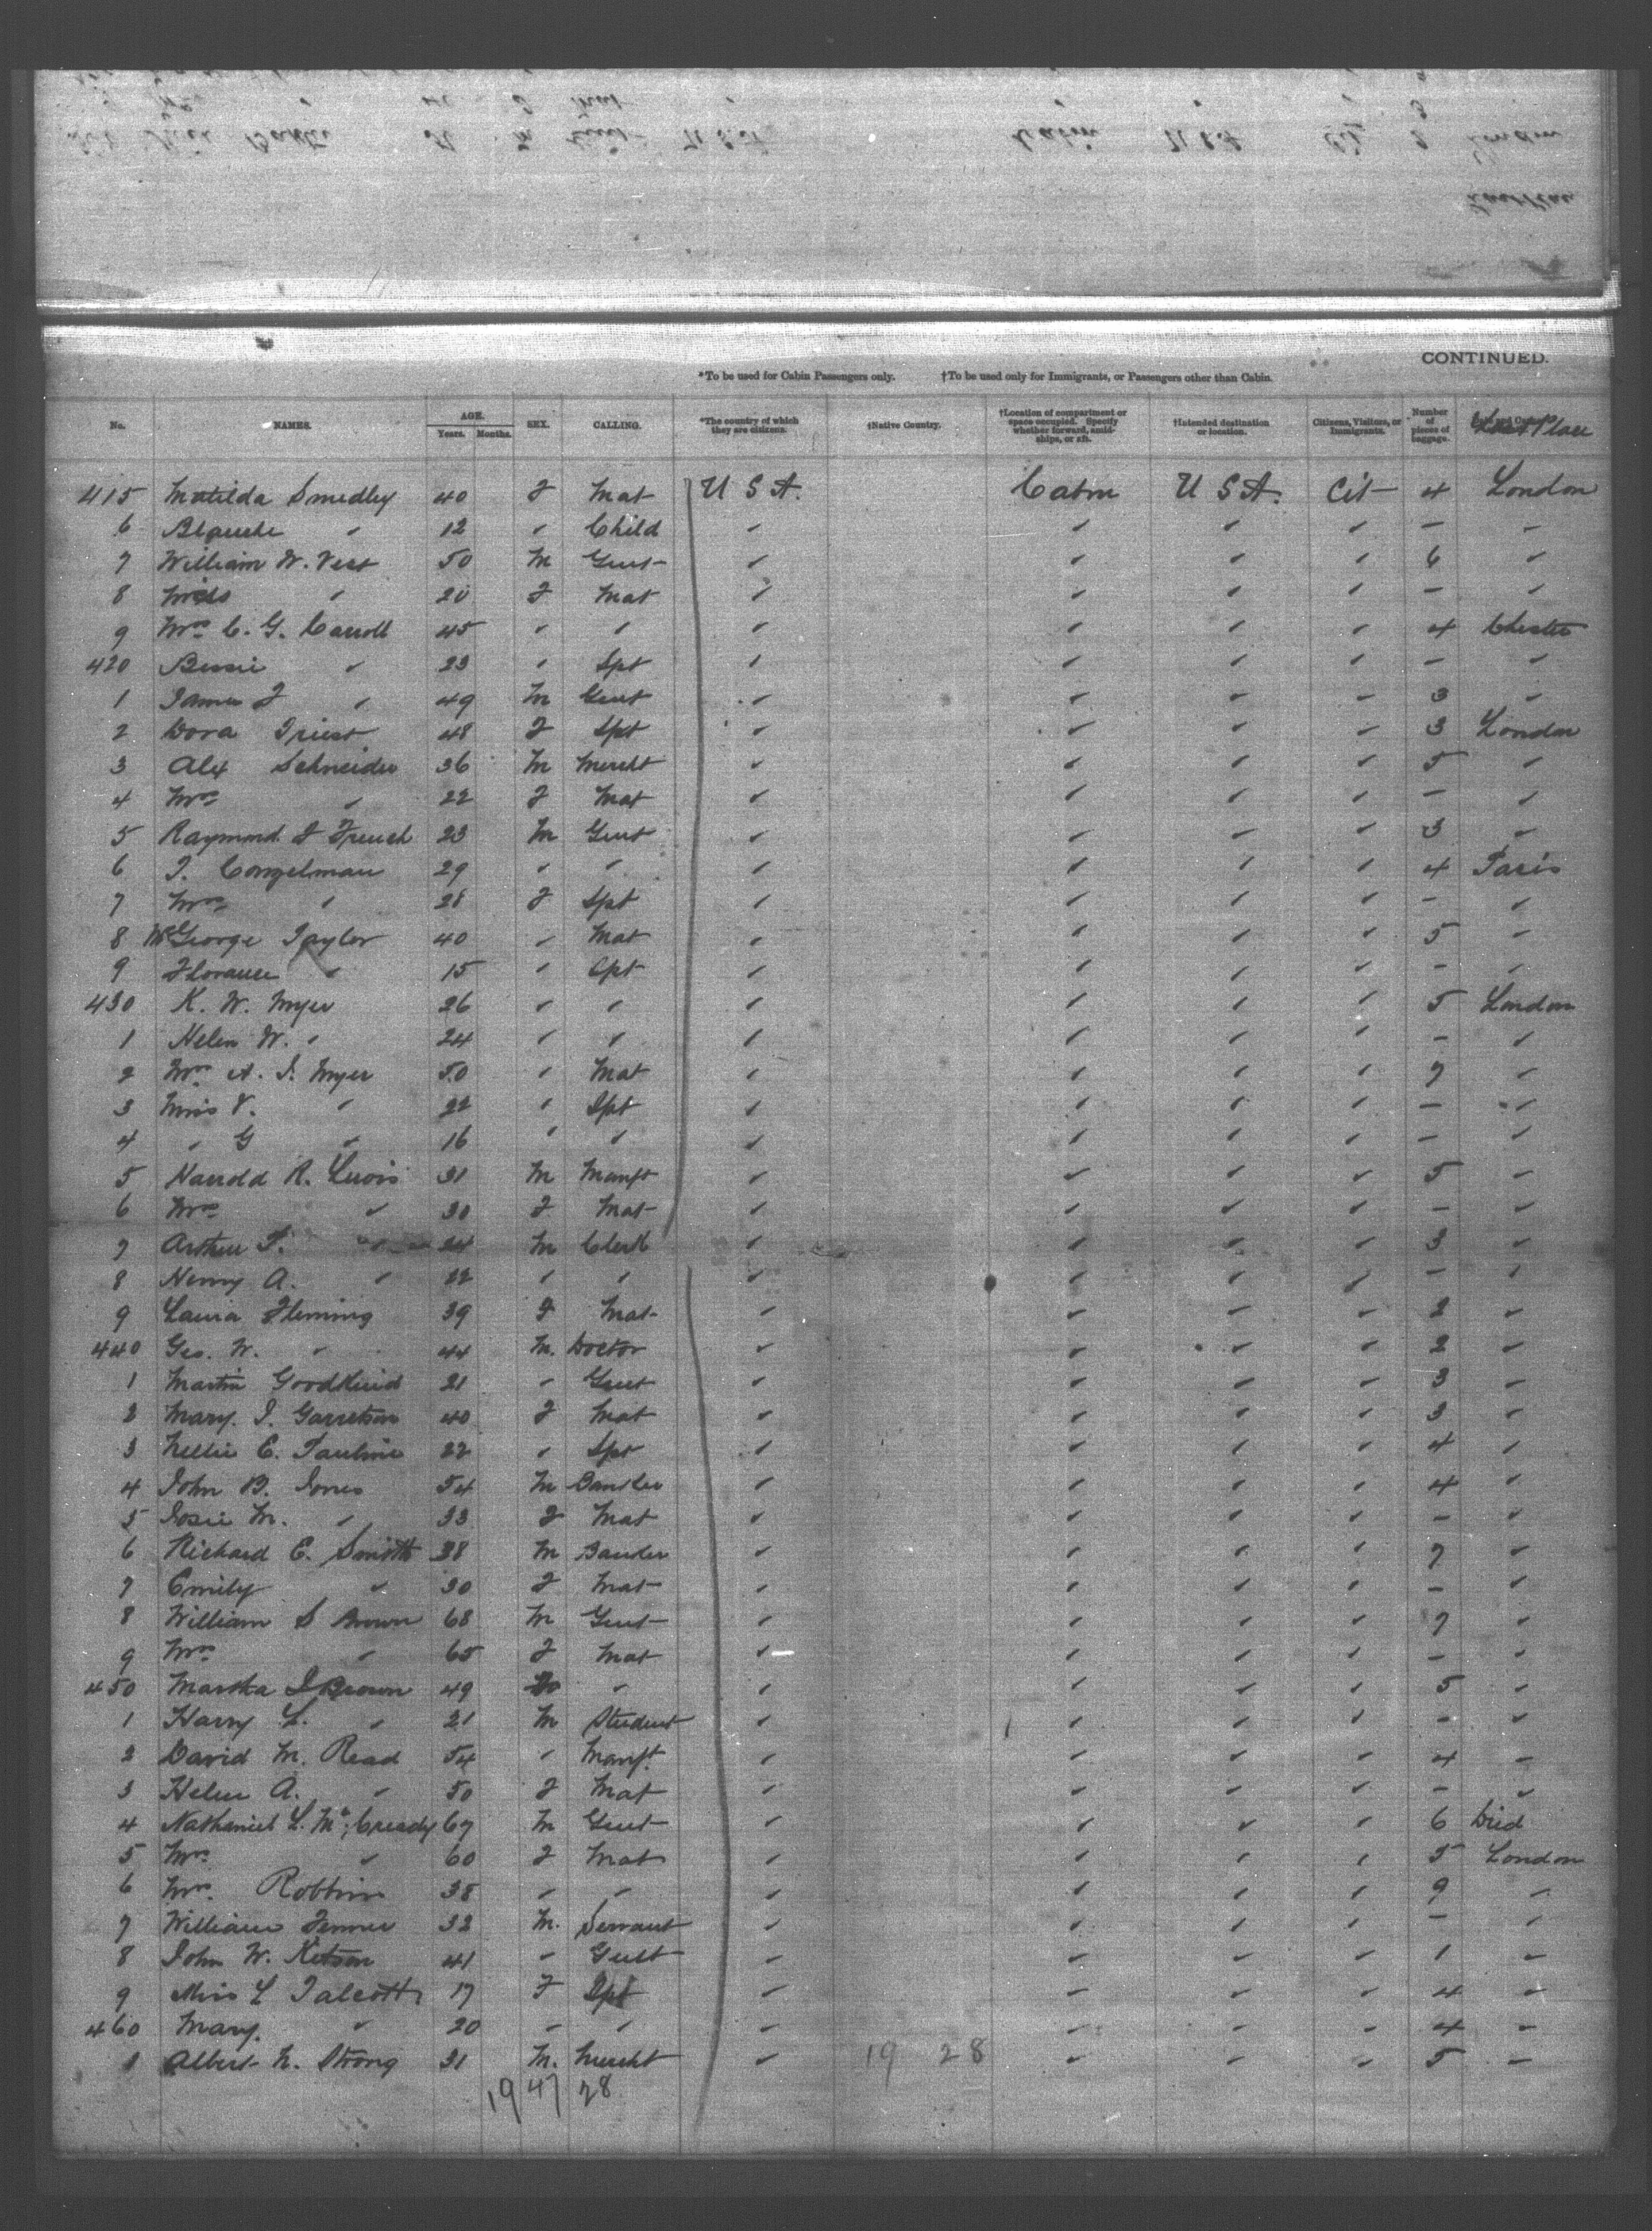 CONTINUED.
*To be used for Cabin Passengers only. †To be used only for Immigrants, or Passengers other than Cabin.
No. NAMES. AGE. Years. Months. SEX. CALLING. *The country of which they are citizens. †Native Country. †Location of compartment or space occupied. Specify whether forward, amidships, or aft. †Intended destination or location. Citizens, Visitors, or Immigrants. Number of pieces of baggage. Last Place
415 Matilda Smedley 40 F Mat U S A. Cabin U S A. Cit 4 London
6 Blanche " 12 " Child " " " — "
7 William W. Vest 50 M Gent " " " " 6 "
8 " 20 F Mat " " " " — "
9 Mrs C. G. Carroll 45 " " " " " " 4 Chester
420 Bessie " 23 " Spt " " " " — "
1 James F " 49 M Gent " " " " 3 "
2 Dora Triest 48 F Spt " " " " 3 London
3 Alex Schneider 36 M Mercht " " " " 5 "
4 Mrs " 22 F Mat " " " " — "
5 Raymond F French 23 M Gent " " " " 3 "
6 29 " " " " " " 4 Paris
7 Mrs " 28 F Spt " " " " — "
8 George Taylor 40 " Mat " " " " 5 "
9 Florance " 15 " Spt " " " " — "
430 K. W. Myer 26 " " " " " " 5 London
1 Helen W. " 24 " " " " " " — "
2 Mrs A. I. Myer 50 " Mat " " " " 7 "
3 Miss V. " 22 " Spt " " " " — "
4 " G " 16 " " " " " " — "
5 Harrold R. Lewis 31 M Manft " " " " 5 "
6 Mrs " 30 F Mat " " " " — "
7 Arthur T. " 24 M Clerk " " " " 3 "
8 Henry A. " 22 " " " " " " — "
9 Laura Fleming 39 F Mat " " " " 2 "
440 Geo. W. " 44 M. Doctor " " " " 2 "
1 Martin Goodkind 21 " Gent " " " " 3 "
2 Mary. I. Garretson 40 F Mat " " " " 3 "
3 Nellie E. 22 " Spt " " " " 4 "
4 John B. Jones 54 M Banker " " " " 4 "
5 Josie M. " 33 F Mat " " " " — "
6 Richard E. Smith 38 M Banker " " " " 7 "
7 Emily " 30 F Mat " " " " — "
8 William S Brown 68 M Gent " " " " 7 "
9 Mrs " 65 F Mat " " " " — "
450 Martha J Brown 49 " " " " " 5 "
1 Harry L. " 21 M Student " " " " — "
2 David M. Read 54 " Manft. " " " " 4 "
3 Helen A. " 50 F Mat " " " " — "
4 Nathaniel L. McCready 67 M Gent " " " " 6 Died
5 Mrs " 60 F Mat " " " " 5 London
6 Mrs. Robbins 38 " " " " " " 9 "
7 William 32 M. Servant " " " " — "
8 John W. Kitson 41 " Gent " " " " 1 "
9 Miss L Talcott 17 F Spt " " " " 4 "
460 Mary. " 20 " " " " " " 4 "
1 Albert N. Strong 31 M. Mercht " 19 28 " " " 5 "
19 47 28